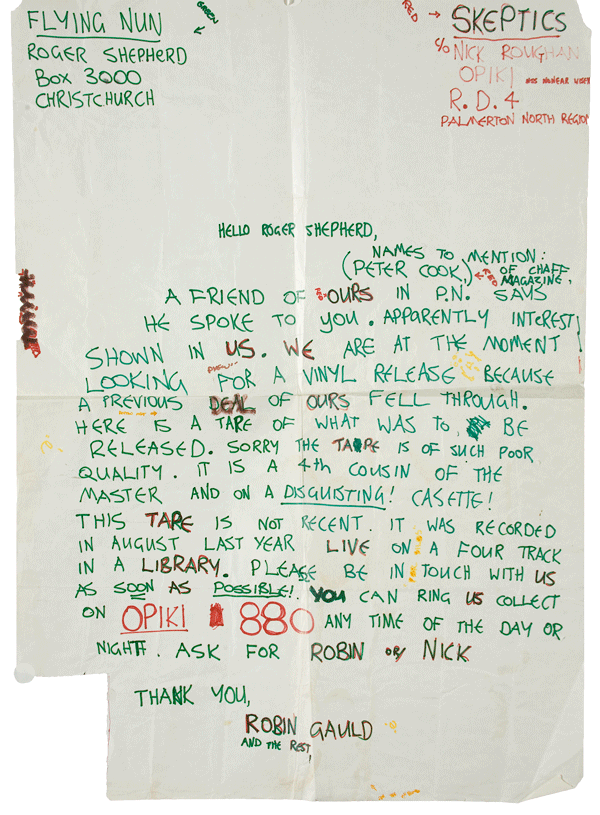 FLYING NUN
GREEN
ROGER SHEPHERD
BOX 3000
CHRISTCHURCH
RED → SKEPTICS
c/o NICK ROUGHAN
OPIKI
R. D. 4
PALMERTON NORTH REGION
HELLO ROGER SHEPHERD,
NAMES TO MENTION:
(PETER COOK) OF CHAFF
MAGAZINE.
A FRIEND OF OURS IN P.N. SAYS
HE SPOKE TO YOU. APPARENTLY INTEREST
SHOWN IN US. WE ARE AT THE MOMENT
LOOKING FOR A VINYL RELEASE BECAUSE
A PREVIOUS DEAL OF OURS FELL THROUGH.
HERE IS A TAPE OF WHAT WAS TO BE
RELEASED. SORRY THE TAPE IS OF SUCH POOR
QUALITY. IT IS A 4th COUSIN OF THE
MASTER AND ON A DISGUISTING! CASETTE!
THIS TAPE IS NOT RECENT. IT WAS RECORDED
IN AUGUST LAST YEAR LIVE ON A FOUR TRACK
IN A LIBRARY. PLEASE BE IN TOUCH WITH US
AS SOON AS POSSIBLE!. YOU CAN RING US COLLECT
ON OPIKI 880 ANY TIME OF THE DAY OR
NIGHT. ASK FOR ROBIN OR NICK
THANK YOU,
ROBIN GAULD
AND THE REST